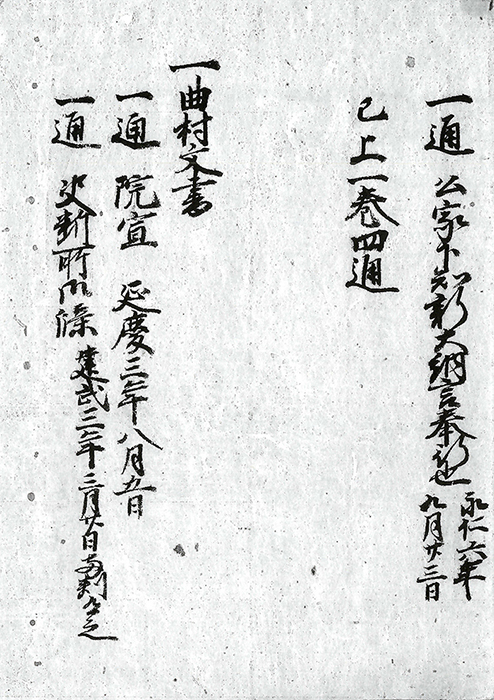 一通 公家下知新大納言奉行也 永仁六年
九月廿三日
已上一巻四通
一曲村文書
一通 院宣 延慶三年八月五日
一通 决断所御牒 建武三年三月廿日 両判在之